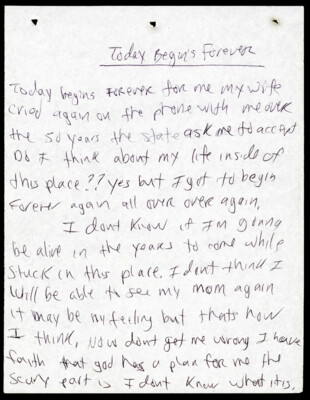 Today Begins Forever
Today begins forever for me my wife
cried again on the phone with me over
the 50 years the state ask me to accept
Do I think about my life inside of
this place?? yes but I got to begin
Forever again all over over again,
I dont know if I'm gonna
be alive in the years to come while
stuck in this place. I dont think I
will be able to see my mom again
it may be my feeling but thats how
I think, Now dont get me wrong I have
faith that god has a plan for me the
scary part is I dont know what it is.